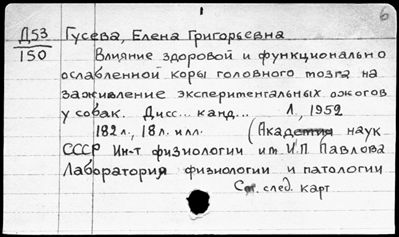 6
Д53 Гусева, Елена Григорьевна
150 Влияние здоровой и функционально
ослабленной коры головного мозга на
заживление экспериментальных ожогов
у собак. Дисс... канд... Л., 1952
182 л., 18 л. илл. (Академия наук
СССР Ин-т физиологии им. И.П Павлова
Лаборатория физиологии и патологии
См. след. карт